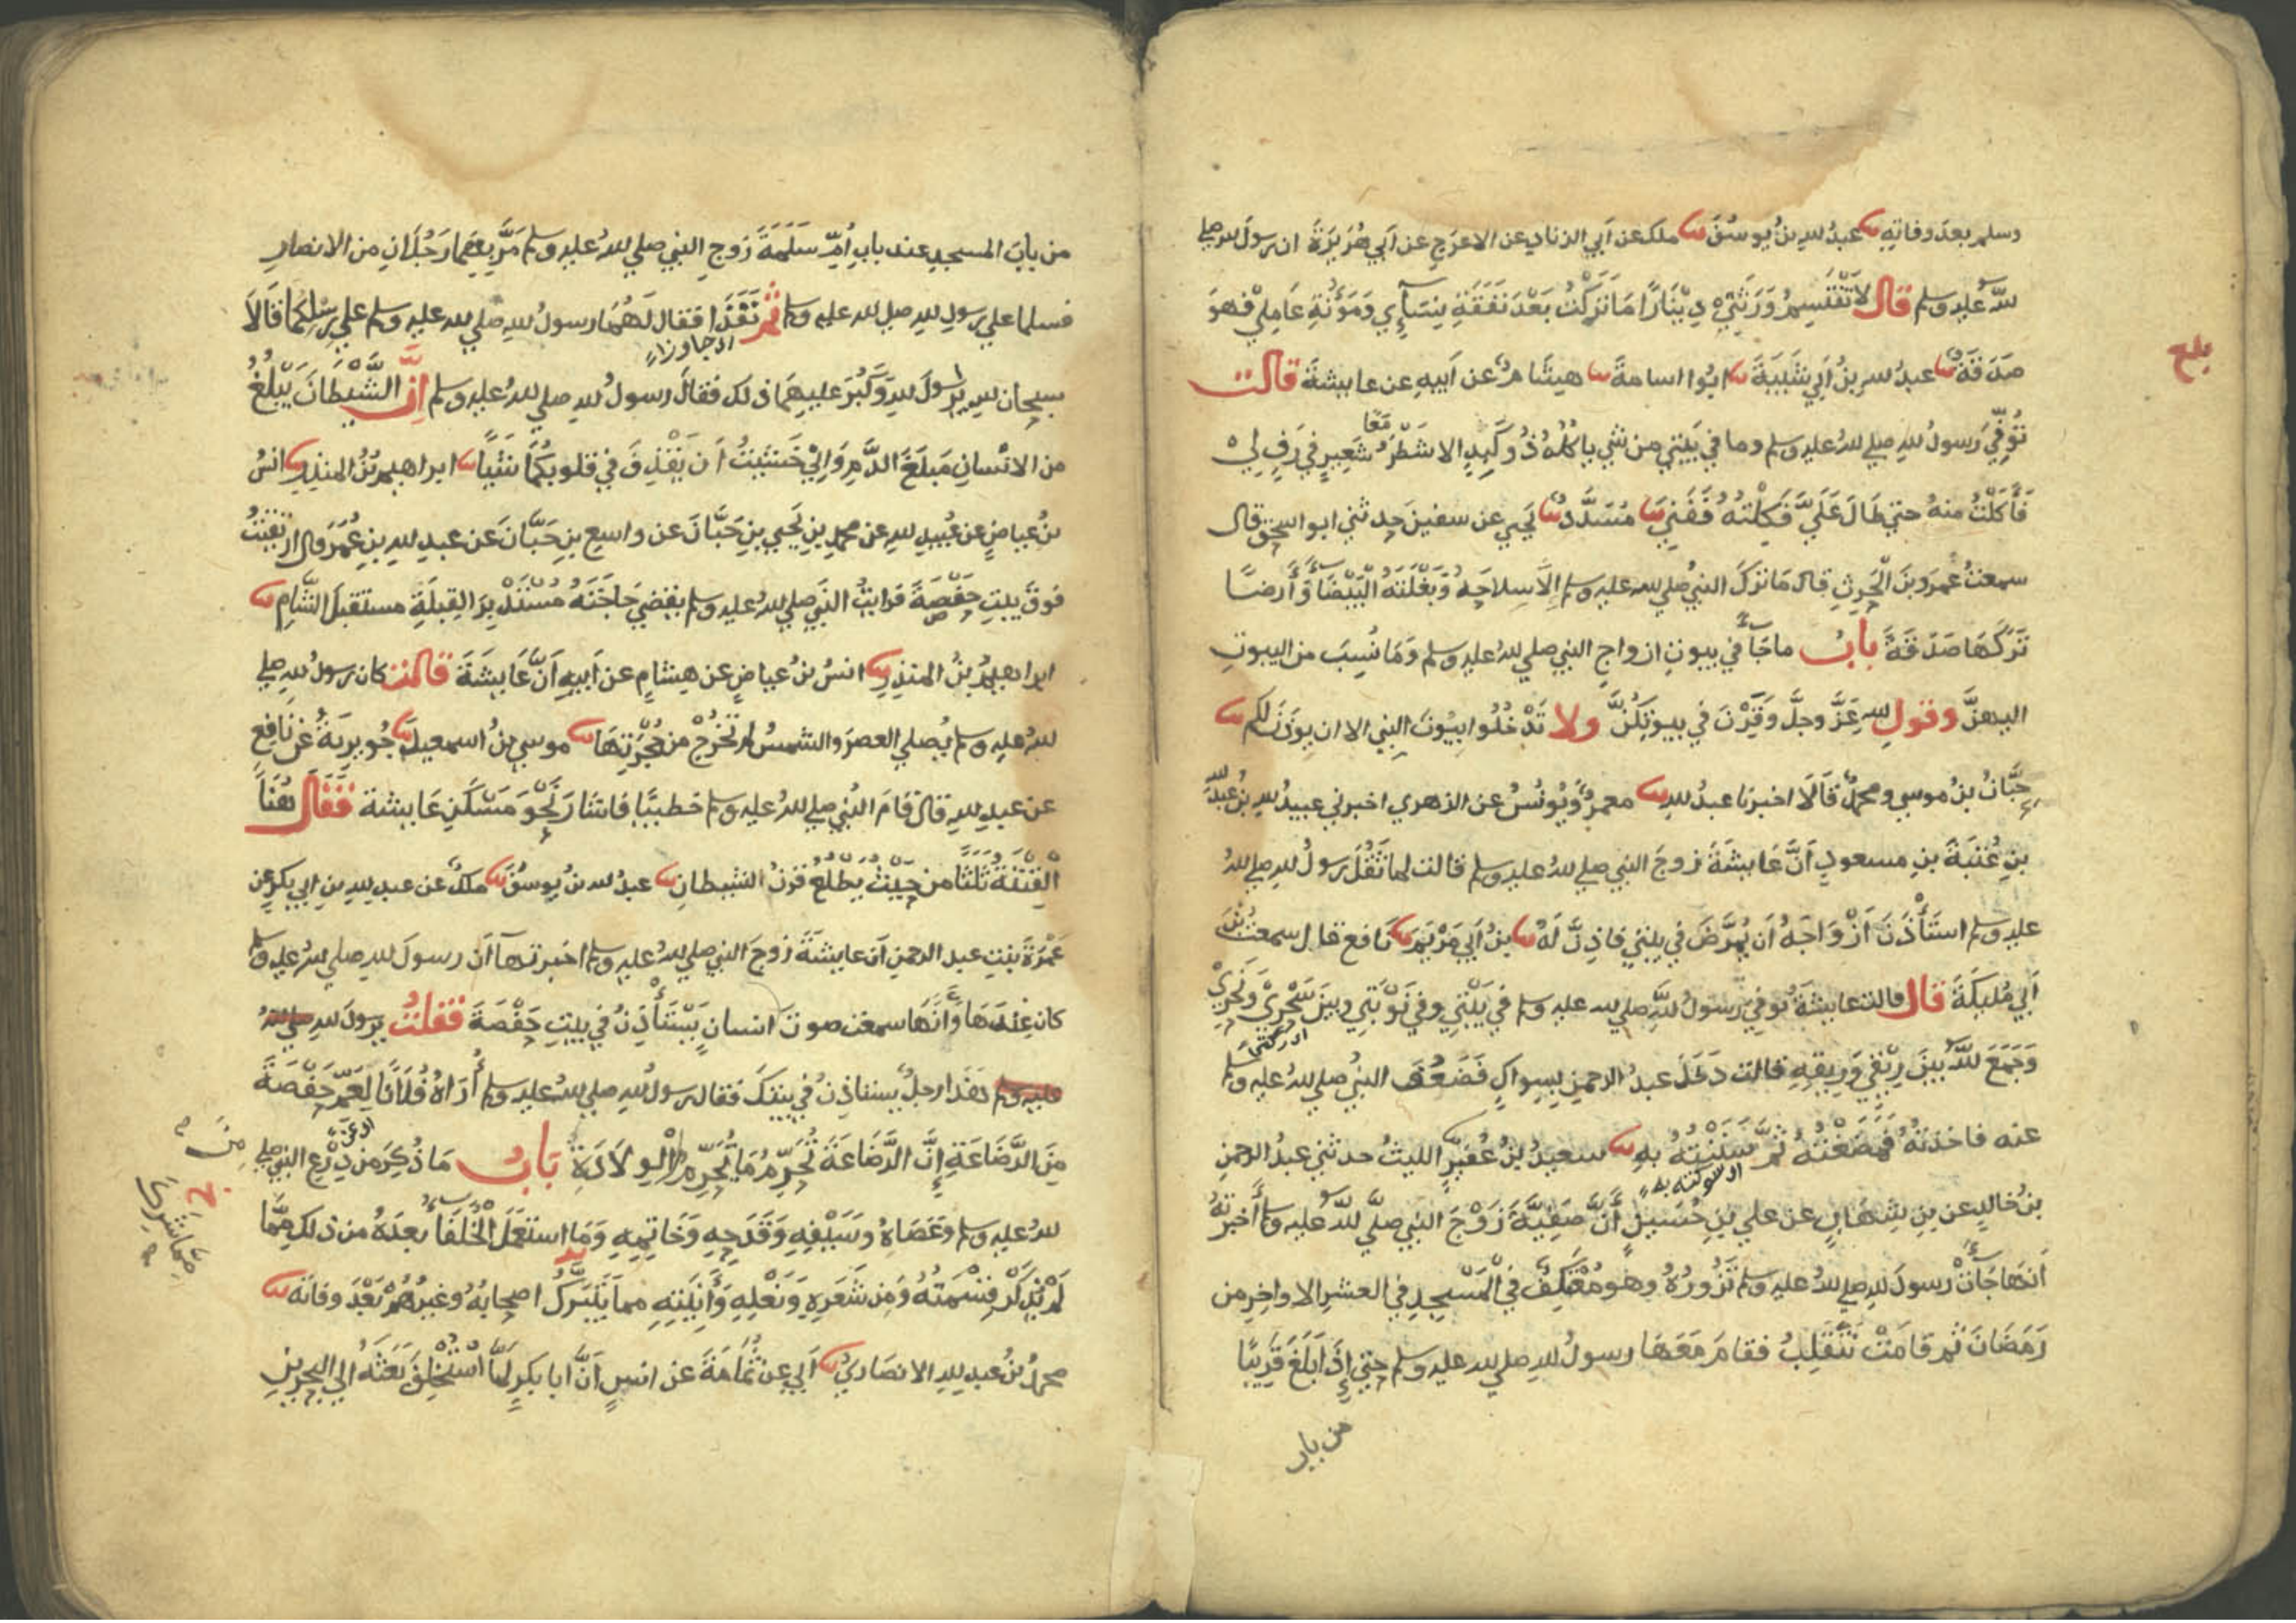 وسلم بعد وفاته نا عبدُ لله بنُ يوسُفَ نا ملك عن أبي الزناد عن الاعرج عن أبي هُرَيرَةَ ان رسولَ لله صلي
للهُ عليه وسلم قال لا تَقْتَسِمُ وَرَثَتِي دِينَارًا مَا تَرَكْتُ بَعْدَ نَفَقَةِ نِسَآئِي وَمَؤُنَةِ عَامِلِي فهوَ
صَدَقَةٌ نا عبدُ لله بنُ أبي شَيبَةَ نا ابُوا اسامةَ نا هِشَامٌ عن أبيهِ عن عايشةَ قالت
تُوُفِّيَ رَسولُ لله صلي للهُ عليه وسلم وما في بَيتي من شي ياكُلُهُ ذُو كَبِدٍ الا شَطْرُ شَعِيرٍ في رَفٍ لِي
فَأَكَلْتُ منهُ حتي طَالَ عَلَيَّ فَكِلْتُهُ فَفَنِيَ نا مُسَدَّدٌ نا يَحيي عن سفينَ حدثني ابو اسحق قال
سمعتُ عَمرَو بنَ الحٰرِثِ قال مَا تركَ النبيُ صلي لله عليه وسلم إِلَّا سِلاحَهُ وَبَغْلَتَهُ البَيْضَآءَ وَأَرضًا
تَرَكَهَا صَدَقَةً بابُ ماجَآءَ في بيوتِ ازواجِ النبي صلي للهُ عليه وسلم وَمَا نُسِبَ من البيوتِ
اليهنَّ وقولِ للهِ عزَّ وجلَّ وَقَرْنَ في بيوتِكُنَّ ولا تَدْخُلُوا بيُوتَ النبي الا ان يوذَنَ لكم نا
حِبَّانُ بنُ موسي ومحمدٌ قَالَا اخبرنا عبدُ للهِ نا معمرٌ وَيُونُسُ عن الزهري اخبرني عبيدُ للهِ بنُ عَبدِ للهِ
بنِ عُتبَةَ بنِ مسعودٍ أَنَّ عَايشةَ زوجَ النبي صلي للهُ عليه وسلم قالت لما ثَقُلَ رسولُ لله صلي للهُ
عليه وسلم استَأْذَنَ أَزْوَاجَهُ أَن يُمَرَّضَ في بيتي فاذِنَّ لَهُ نا بنُ أَبي مَرْيَمَ نا نَافع قال سمعتُ بْنَ
أَبي مُلَيكَةَ قال قالت عايشةُ تُوفِيَ رَسولُ للهِ صلي لله عليه وسلم في بَيْتي وفي نَوْبَتي وبينَ سَحْرِي وَنَحْرِي
وَجَمَعَ للهُ بَينَ رِيْقِي وَرِيقِهِ قالت دَخَلَ عبدُ الرحمنِ بِسِواكٍ فَضَعُفَ النبيُ صلي للهُ عليه وسلم
عنه فاخذتُهُ فَمَضَغْتُهُ ثُمَّ سَنَنْتُهُ بهِ نا سعيدُ بنُ عُفَيرٍ الليثُ حدثني عبدُ الرحمنِ
بنُ خالدٍ عن بنِ شِهَابٍ عن علي بنِ حُسَينٍ أَنَّ صَفِيَّةَ زَوْجَ النبي صلَّي للهُ عليه وسلم أَخبرتهُ
أَنَّهَا جَآتْ رَسولَ لله صلي للهُ عليه وسلم تَزُورُهُ وهو مُعتَكِفٌ في الْمَسْجِدِ في العشرِ الاواخِرِ من
رَمَضَانَ ثُم قامَتْ تَنْقَلِبُ فقامَ مَعَهَا رسولُ لله صلي لله عليه وسلم حتي إِذَا بَلَغَ قَرِيبًا
من باب
بلغ
معًا
من بابِ المسجدِ عند بابِ أُمِّ سَلَمَةَ زَوجِ النبي صلي للهُ عليه وسلم مَرَّ بِهِمَا رَجُلَانِ من الانصارِ
فسلما علي رسولِ للهِ صلي لله عليه وسلم ثم نَفَذَا فقال لَهُمَا رسولُ للهِ صلي لله عليه وسلم علي رِسْلِكُمَا قَالَا
سبحان للهِ يرسولَ للهِ وَكَبُرَ عليهِمَا ذلك فقالَ رسولُ للهِ صلي للهُ عليه وسلم إِنَّ الشَّيْطَانَ يَبْلُغُ
من الانْسانِ مَبلَغَ الدَّمِ وَإِنِّي خَشِيتُ أَن يَقْذِفَ في قلوبِكُمَا شَيْأً نا ابراهيمُ بنُ المنذرِ نا انسُ
بنُ عياضٍ عن عُبيدِ للهِ عن محمدِ بنِ يَحيي بنِ حَبَّانَ عن واسعِ بنِ حَبَّانَ عن عبدِ للهِ بنِ عُمَرَ قال ارتقيتُ
فوقَ بيتِ حَفْصَةَ فرايتُ النبيَ صلي للهُ عليه وسلم يقضي حَاجَتَهُ مُسْتَدْبِرَ القبلَةِ مستقبلَ الشَّامِ نا
ابراهيمُ بنُ المنذرِ نا انسُ بنُ عياضٍ عن هشامٍ عن أَبيهِ أَنَّ عَايشَةَ قالتْ كان رسولُ للهِ صلي
للهُ عليه وسلم يُصلي العصرَ والشمسُ لم تَخْرُجْ من حُجْرَتِهَا نا موسي بنُ اسمعيلَ نا جُويريَةُ عن نَافعِ
عن عبدِ للهِ قال قامَ النبي صلي للهُ عليه وسلم خطيبًا فاشَارَ نَحْوَ مَسْكَنِ عَايشةَ فَقَالَ هُنَا
الفِتْنَةُ ثَلٰثًا من حَيْثُ يَطْلُعُ قرنُ الشيطانِ نا عبدُ لله بنُ يوسُفَ نا ملكٌ عن عبدِ للهِ بنِ ابي بكرٍ عن
عَمْرَةَ بنتِ عبد الرحمنِ ان عايشةَ زوجَ النبي صلي للهُ عليه وسلم اخبرتهآ أَن رسولَ للهِ صلي للهُ عليه وسلم
كان عِنْدَهَا وَأَنَّهَا سمعت صوتَ انسانٍ يَسْتَأْذِنُ في بيتِ حَفْصَةَ فقلتُ يرسولَ للهِ صلي للهُ
عليه وسلم هٰذا رجلٌ يستاذنُ في بيتكَ فقال رسولُ للهِ صلي للهُ عليه وسلم أُرَاهُ فُلَانًا لِعَمِّ حَفْصَةَ
مِنَ الرَّضَاعَةِ إِنَّ الرَّضَاعَةَ تُحَرِّمُ مَا تُحَرِّمُ الْوِلَادَةُ بَابُ مَا ذُكِرَ مِن دِرْعِ النبي صلي
للهُ عليه وسلم وَعَصَاهُ وسَيْفِهِ وَقَدَحِهِ وَخَاتِمِهِ وَمَا استَعْمَلَ الْخُلَفَآءُ بعدَهُ من ذلك مِمَّا
لَمْ يُذْكَرْ قِسْمَتُهُ وَمِن شَعَرِهِ وَنَعْلِهِ وَآنِيَتِهِ مما يَتَبَرَّكُ اصحابُهُ وغيرُهُمْ بَعْدَ وفاتهِ نا
محمدُ بنُ عبدِ للهِ الانصاريُ نا أَبي عن ثُمَامَةَ عن انسٍ أَنَّ ابا بكرٍ لَمَّا اسْتُخْلِفَ بَعَثَهُ إلي البحرينِ